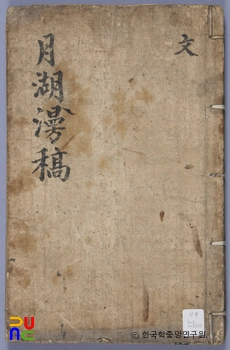 文
月湖漫稿
© 한국학중앙연구원